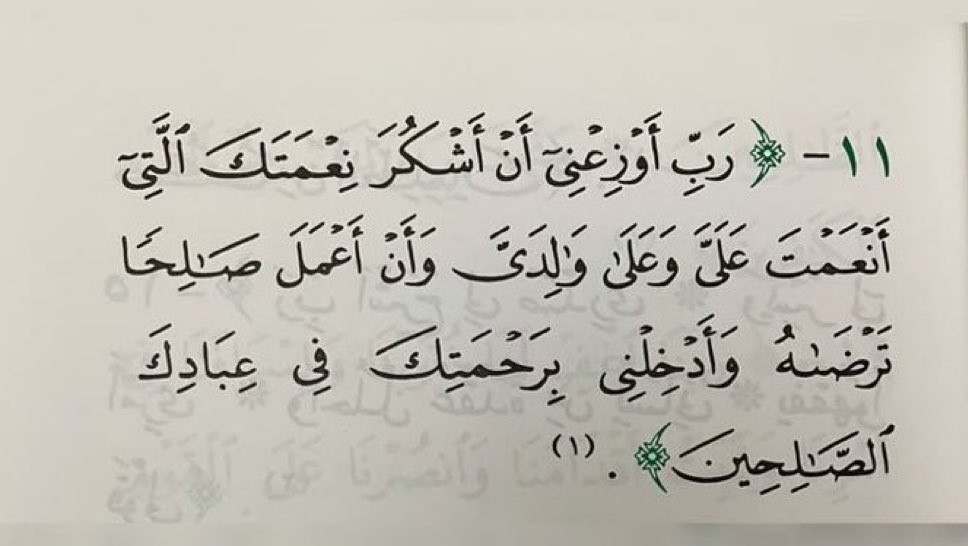 ١١- ﴿ رَبِّ أَوْزِعْنِىٓ أَنْ أَشْكُرَ نِعْمَتَكَ ٱلَّتِىٓ
أَنْعَمْتَ عَلَىَّ وَعَلَىٰ وَٰلِدَىَّ وَأَنْ أَعْمَلَ صَـٰلِحًا
تَرْضَىٰهُ وَأَدْخِلْنِى بِرَحْمَتِكَ فِى عِبَادِكَ
ٱلصَّـٰلِحِينَ ﴾ . (١)